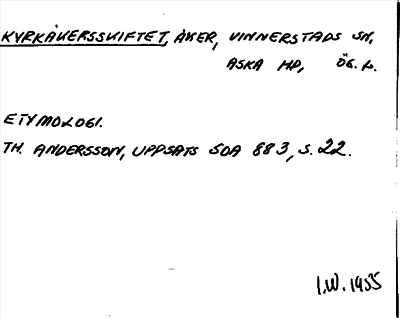 KYRKÅKERSSKIFTET, ÅKER, VINNERSTADS SN,
ASKA HD, ÖG. L.
ETYMOLOGI.
TH. ANDERSSON, UPPSATS SOA 883, S. 22.
I.W. 1955